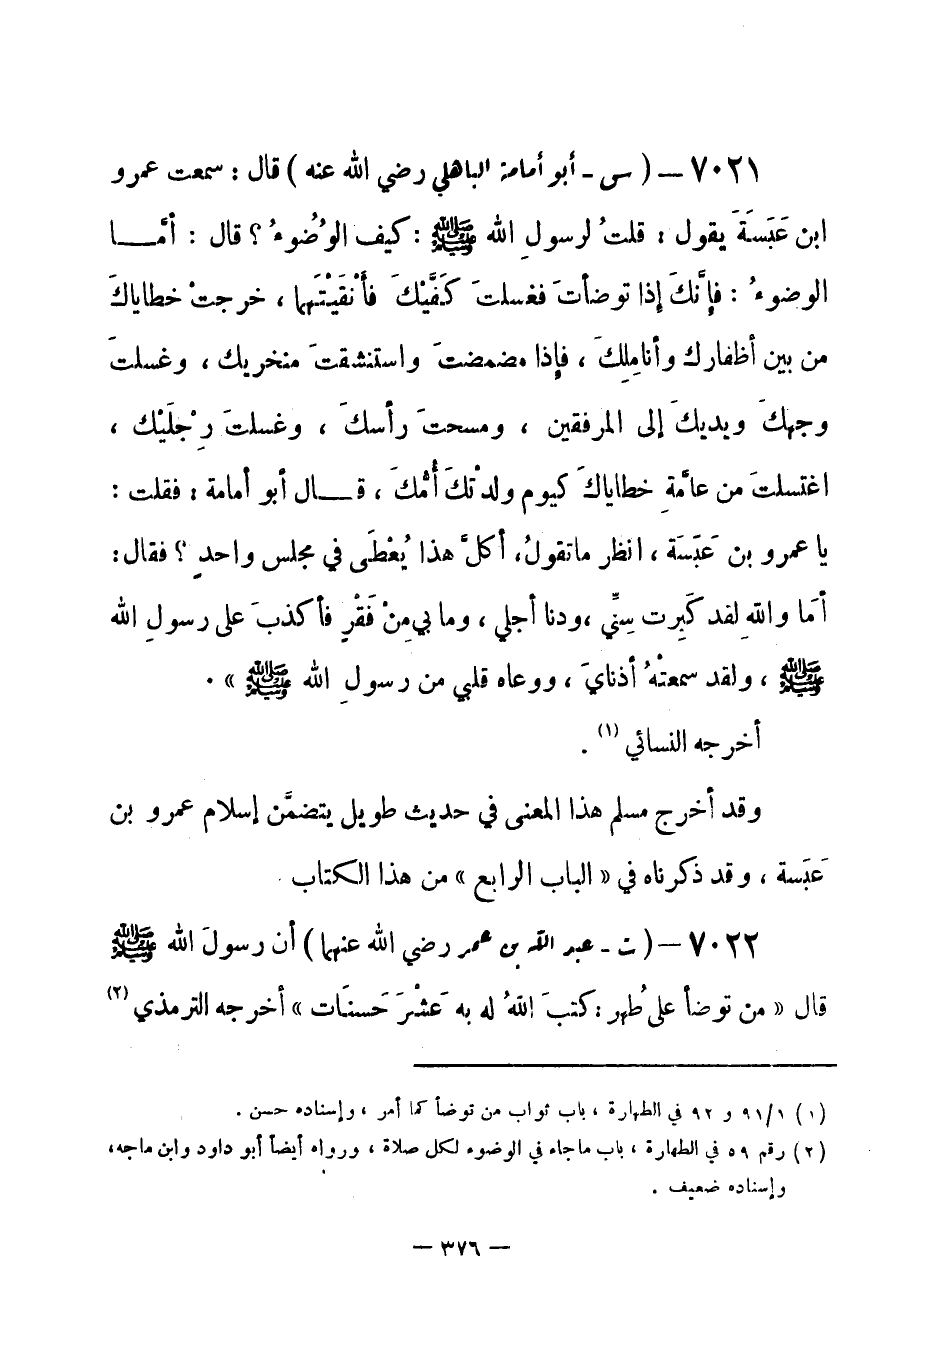 ٧٠٢١ – ( س - أبو أمامة الباهلي رضي الله عنه ) قال : سمعت عمرو
ابن عَبَسَةَ يقول : قلتُ لرسولِ الله ﷺ : كيف الوُضُوءُ ؟ قال : أمَّـــا
الوضوءُ : فإنَّكَ إذا توضأتَ فغسلتَ كَفَّيْكَ فأَنْقَيْتَهما ، خرجتْ خطاياكَ
من بين أظفارك وأنامِلِكَ ، فإذا مضمضتَ واستنشقتَ منخريك ، وغسلتَ
وجهكَ ويديكَ إلى المرفقين ، ومسحتَ رأسكَ ، وغسلتَ رِجْلَيْكَ ،
اغتسلتَ من عامَّةِ خطاياكَ كيوم ولدتْكَ أُمُّكَ ، قـــال أبو أمامة : فقلت :
يا عمرو بن عَبَسَة ، انظر ماتقولُ ، أكلَّ هذا يُعْطَى في مجلس واحدٍ ؟ فقال :
أمَا واللهِ لقد كَبِرت سِنِّي ، ودنا أجلي ، وما بي مِنْ فَقْرٍ فأكذبَ على رسولِ الله
ﷺ ، ولقد سمعتْهُ أذنايَ ، ووعاه قلبي من رسولِ الله ﷺ » .
أخرجه النسائي (١) .
وقد أخرج مسلم هذا المعنى في حديث طويل يتضمَّن إسلام عمرو بن
عَبَسة ، وقد ذكرناه في « الباب الرابع » من هذا الكتاب .
٧٠٢٢ – ( ت - عبد الله بن عمر رضي الله عنهما ) أن رسولَ الله ﷺ
قال « من توضأ على طُهر : كتبَ اللهُ له به عَشْرَ حَسنَات » أخرجه الترمذي (٢)
(١) ٩١/١ و ٩٢ في الطهارة ، باب ثواب من توضأ كما أمر ، وإسناده حسن .
(٢) رقم ٥٩ في الطهارة ، باب ماجاء في الوضوء لكل صلاة ، ورواه أيضاً أبو داود وابن ماجه ،
وإسناده ضعيف .
– ٣٧٦ –